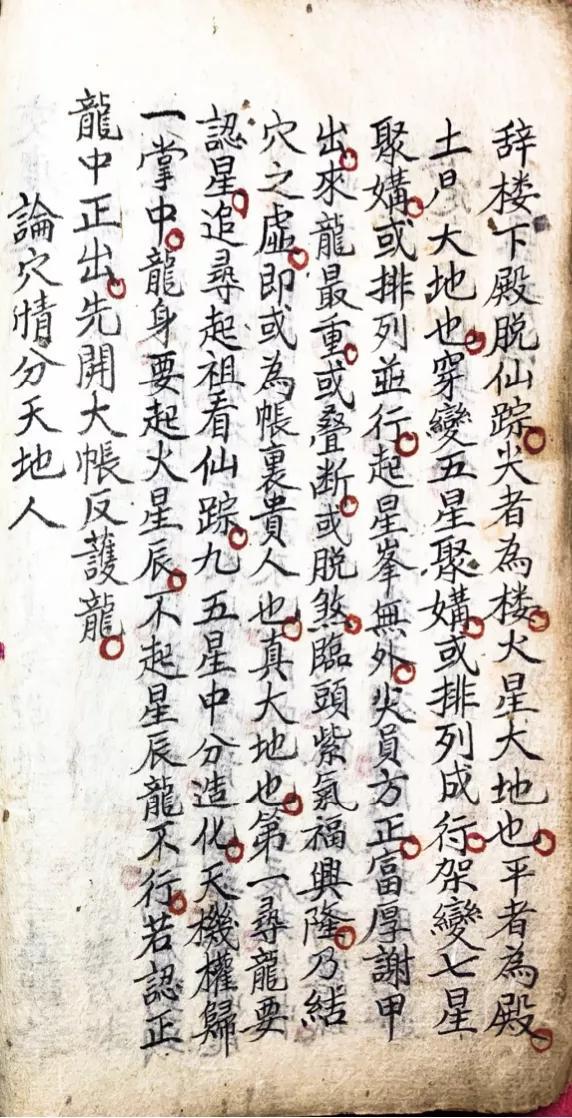 辞楼下殿脱仙踪尖者為楼火星大地也平者為殿
土星大地也穿變五星聚媾或排列成行架變七星
聚媾或排列並行起星峯無外尖員方正富厚謝甲
出來龍最重或叠断或脱煞臨頭紫氣福興隆乃結
穴之虛即或為帳裏貴人也真大地也第一尋龍要
認星追尋起祖看仙踪九五星中分造化天機權歸
一掌中龍身要起火星辰不起星辰龍不行若認正
龍中正出先開大帳反護龍
論穴情分天地人